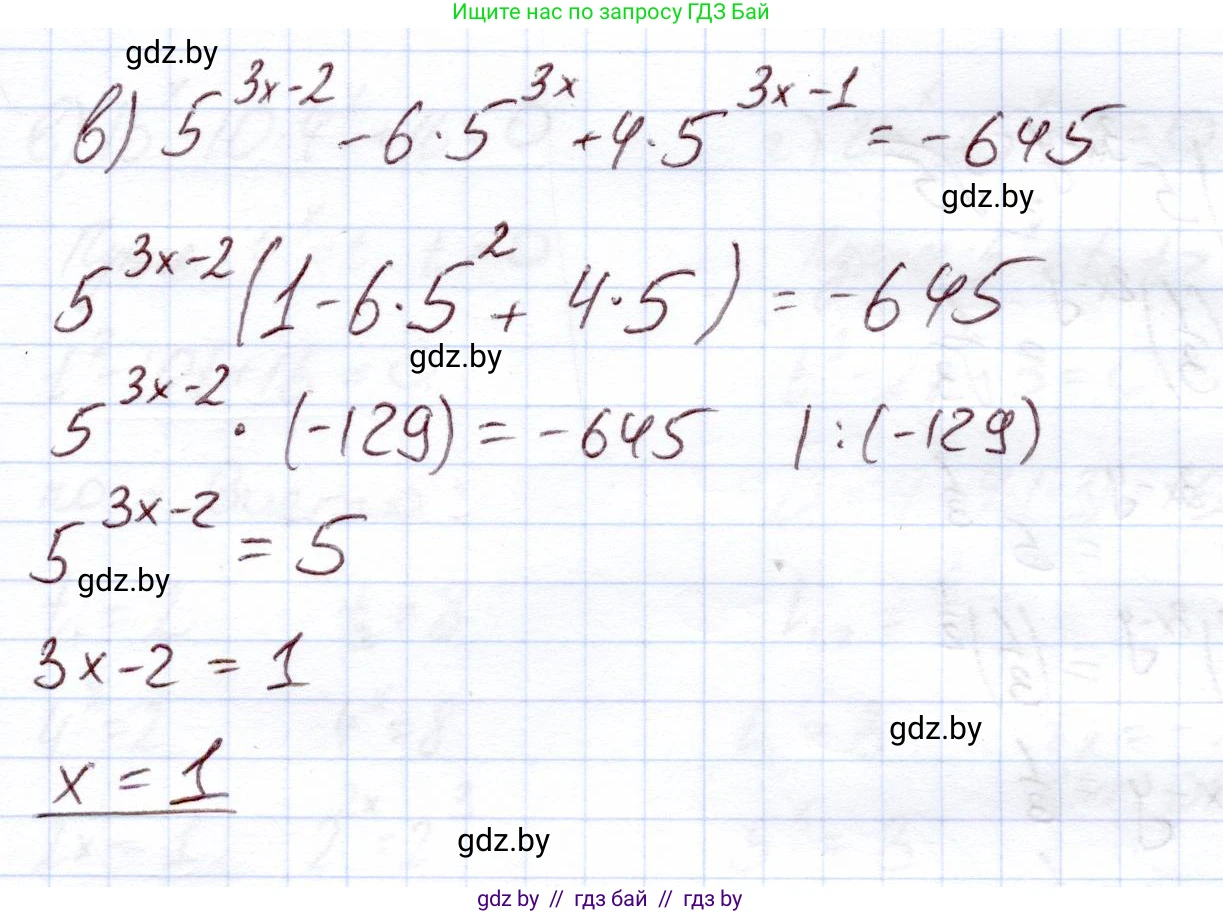 Ищите нас по запросу ГДЗ Бай
gdz.by
в) 5^{3x-2} - 6·5^{3x} + 4·5^{3x-1} = -645
gdz.by
5^{3x-2}(1 - 6·5^2 + 4·5) = -645
gdz.by
5^{3x-2} · (-129) = -645 | :(-129)
5^{3x-2} = 5
gdz.by
3x-2 = 1
gdz.by
x = 1
gdz.by
gdz.by // гдз бай // гдз by